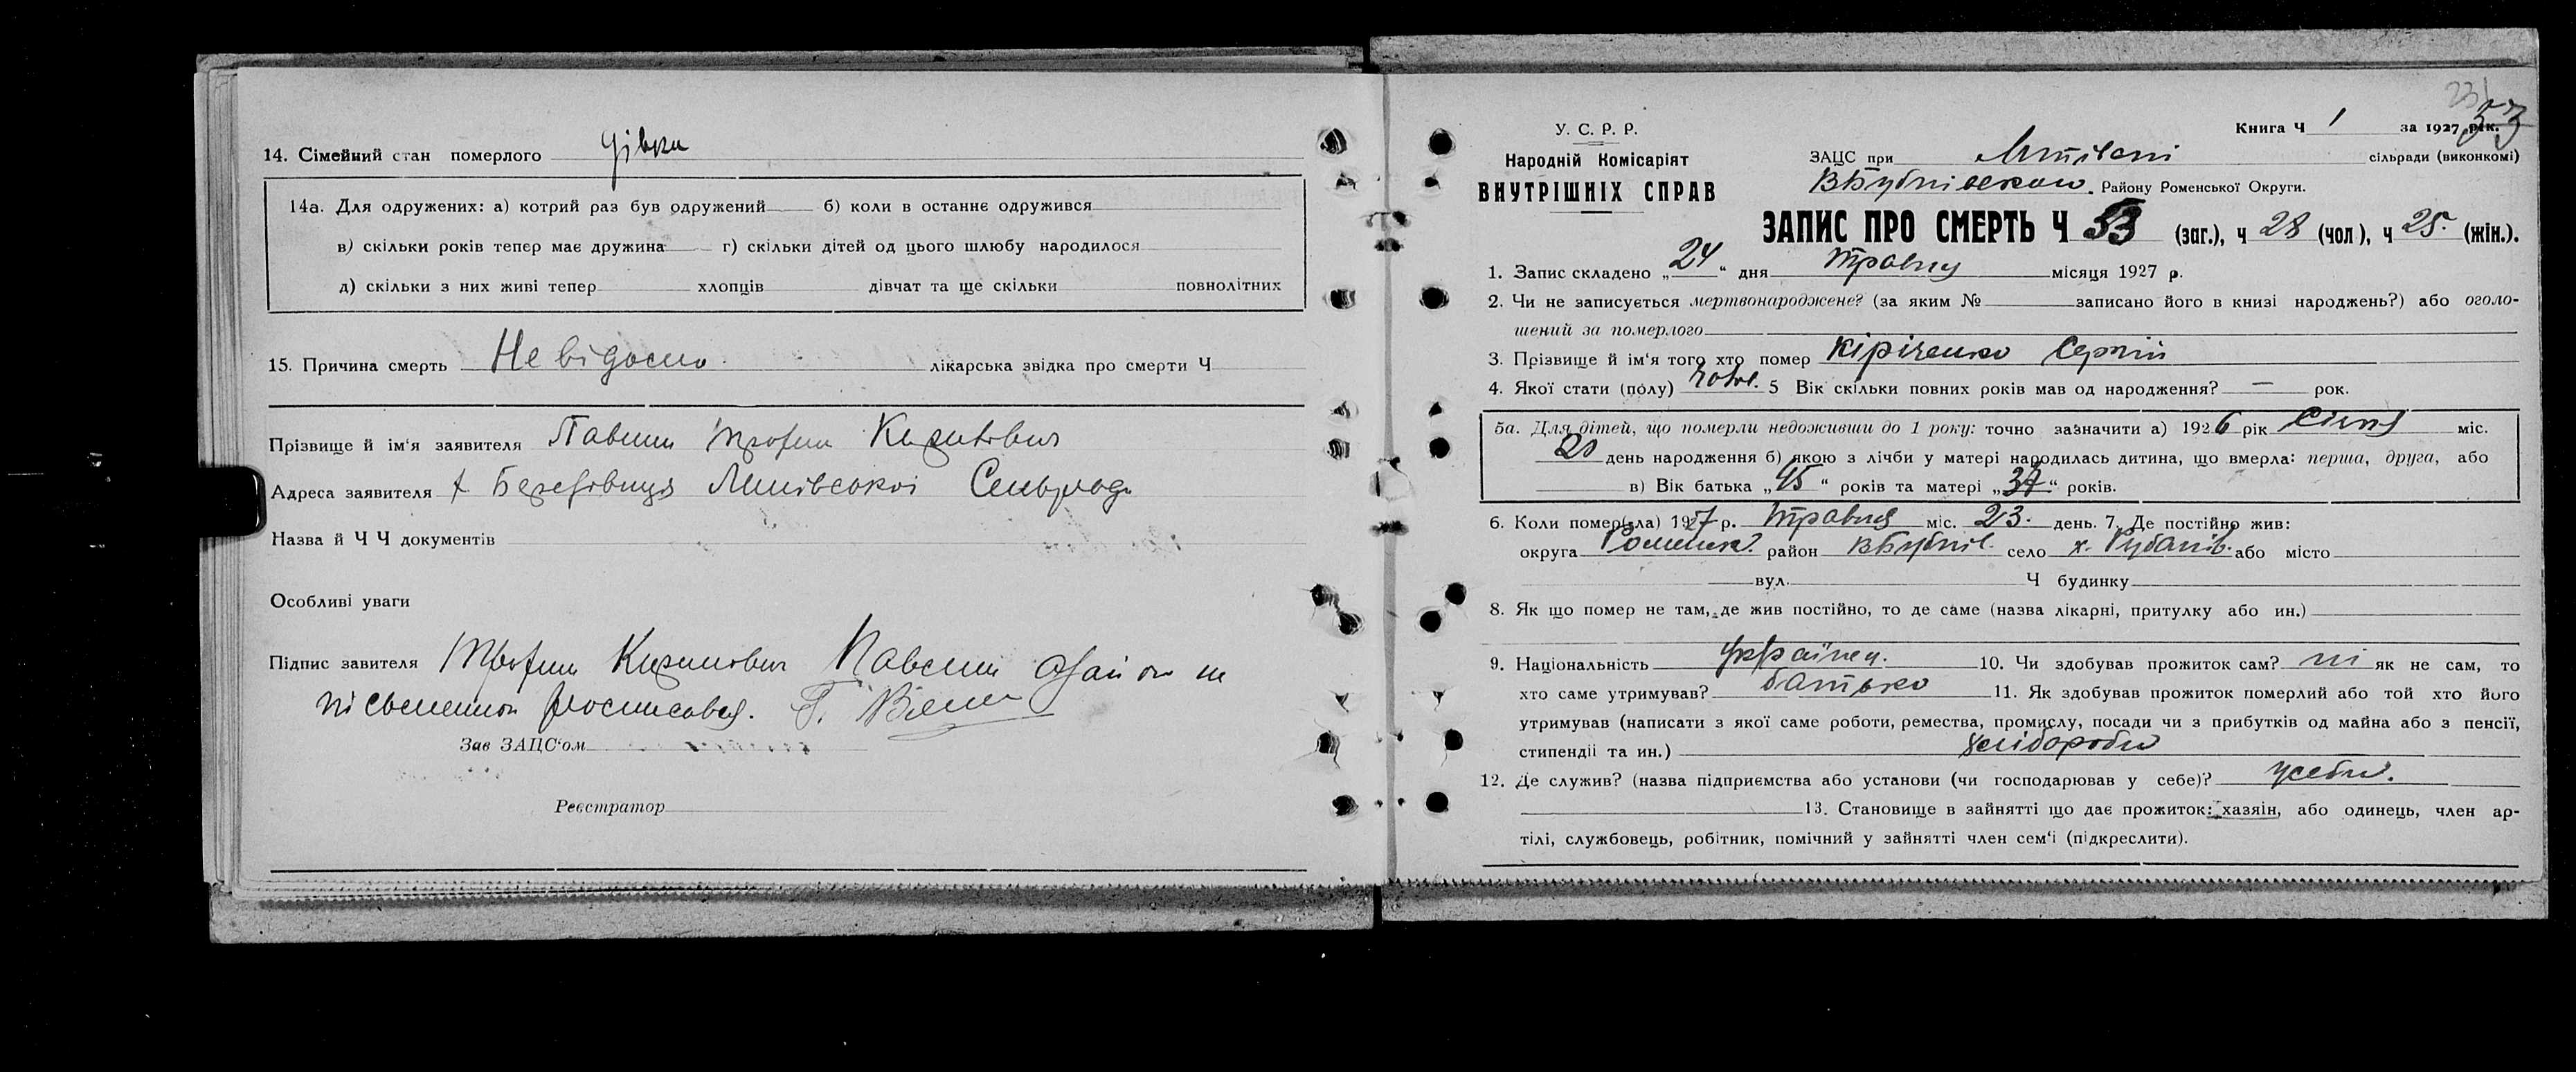 14. Сімейний стан померлого дівка
14а. Для одружених: а) котрий раз був одружений б) коли в останнє одружився
в) скільки років тепер має дружина г) скільки дітей од цього шлюбу народилося
д) скільки з них живі тепер хлопців дівчат та ще скільки повнолітних
15. Причина смерть Невідомо лікарська звідка про смерти Ч
Прізвище й ім'я заявителя Павлии Трофим Кирилович
Адреса заявителя х Березівиця Сельради
Назва й Ч Ч документів
Особливі уваги
Підпис завителя Трофим Кирилович
письменной росписовся.
Зав ЗАЦС'ом
Реєстратор
231
53
У. С. Р. Р.
Народній Комісаріят
ВНУТРІШНІХ СПРАВ
Книга Ч 1 за 1927 рік.
ЗАЦС при сільради (виконкомі)
ВБубнівского Району Роменської Округи.
ЗАПИС ПРО СМЕРТЬ Ч 53 (заг.), ч 28 (чол), ч 25. (жін.).
1. Запис складено „24" дня травня місяця 1927 р.
2. Чи не записується мертвонароджене? (за яким № записано його в книзі народжень?) або оголо-
шений за померлого
3. Прізвище й ім'я того хто помер Кіріченко Сергій
4. Якої стати (полу) чолов. 5 Вік скільки повних років мав од народження? — рок.
5а. Для дітей, що померли недоживши до 1 року: точно зазначити а) 1926 рік Січня міс.
20 день народження б) якою з лічби у матері народилась дитина, що вмерла: перша, друга, або
в) Вік батька „45" років та матері „37" років.
6. Коли помер(ла) 1927 р. травня міс. 23. день. 7. Де постійно жив:
округа Роменск. район ВБубнів. село х. Рубанів. або місто
вул. Ч будинку
8. Як що помер не там, де жив постійно, то де саме (назва лікарні, притулку або ин.)
9. Національність українец. 10. Чи здобував прожиток сам? ні як не сам, то
хто саме утримував? батько 11. Як здобував прожиток померлий або той хто його
утримував (написати з якої саме роботи, ремества, промислу, посади чи з прибутків од майна або з пенсії,
стипендії та ин.) хлібороби
12. Де служив? (назва підприємства або установи (чи господарював у себе)? усебе.
13. Становище в зайнятті що дає прожиток: хазяін, або одинець, член ар-
тілі, службовець, робітник, помічний у зайнятті член сем'ї (підкреслити).